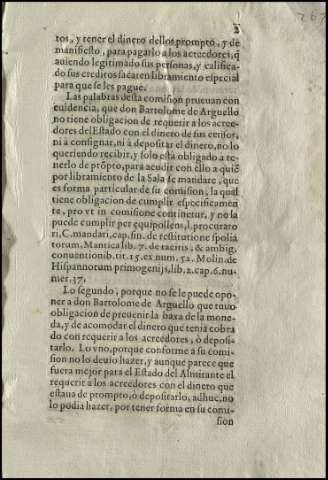 2
tos, y tener el dinero dellos prompto, y de
manifiesto, para pagarlo a los acreedores, q̃
auiendo legitimado sus personas, y califica-
do sus creditos sacaren libramiento especial
para que se les pague.
Las palabras desta comision prueuan con
euidencia, que don Bartolome de Arguello
no tiene obligacion de requerir a los acree-
dores del Estado con el dinero de sus censos,
ni à consignar, ni à depositar el dinero, no lo
queriendo recibir, y solo està obligado a te-
nerlo de prõpto, para acudir con ello a quiẽ
por libramiento de la Sala se mandare, que
es forma particular de su comision, la qual
tiene obligacion de cumplir especificamen-
te, pro vt in comisione continetur, y no la
puede cumplir per equipollens, l. procurato
ri, C. mandari, cap. fin. de restitutione spolia
torum, Mantica lib. 7. de tacitis, & ambig.
conuentionib. tit. 15. ex num. 52. Molin. de
Hispannorum primogenijs, lib. 2. cap. 6. nu-
mer. 37.
Lo segundo, porque no se le puede opo-
ner a don Bartolome de Arguello que tuuo
obligacion de preuenir la baxa de la mone-
da, y de acomodar el dinero que tenia cobra
do con requerir a los acreedores, ò deposi-
tarlo. Lo vno, porque conforme a su comi-
sion no lo deuio hazer, y aunque parece que
fuera mejor para el Estado del Almirante el
requerir a los acreedores con el dinero que
estaua de prompto, ò depositarlo, adhuc no
lo podia hazer, por tener forma en su comi-
sion